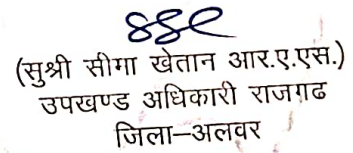 (सुश्री सीमा खेतान आर.ए.एस.)
उपखण्ड अधिकारी राजगढ
जिला–अलवर